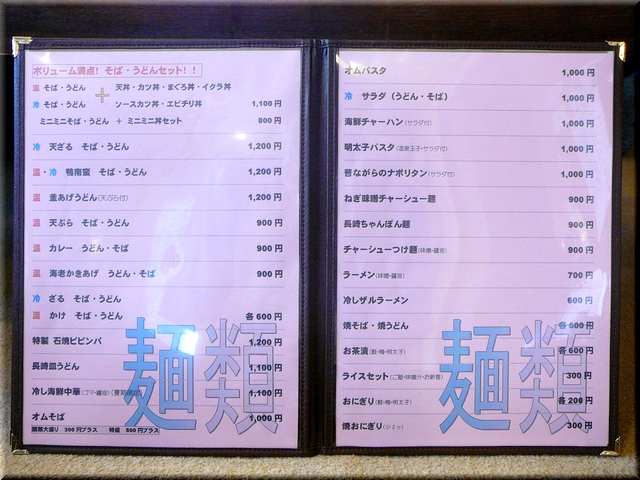 ボリューム満点! そば・うどんセット!!
温 そば・うどん + 天丼・カツ丼・まぐろ丼・イクラ丼
冷 そば・うどん ソースカツ丼・エビチリ丼 1,100円
ミニミニそば・うどん + ミニミニ丼セット 800円
冷 天ざる そば・うどん 1,200円
温・冷 鴨南蛮 そば・うどん 1,200円
温 釜あげうどん(天ぷら付) 1,200円
温 天ぷら そば・うどん 900円
温 カレー うどん・そば 900円
温 海老かきあげ うどん・そば 900円
冷 ざる そば・うどん
温 かけ そば・うどん 各600円
特製 石焼ビビンバ 1,200円
長崎皿うどん 1,100円
冷し海鮮中華(ゴマ・醤油) 1,100円
オムそば 1,000円
麺類大盛り 200円プラス 特盛 500円プラス
麺類
オムパスタ 1,000円
冷 サラダ(うどん・そば) 1,000円
海鮮チャーハン(サラダ付) 1,000円
明太子パスタ(温泉玉子・サラダ付) 1,000円
昔ながらのナポリタン(サラダ付) 1,000円
ねぎ味噌チャーシュー麺 900円
長崎ちゃんぽん麺 900円
チャーシューつけ麺(味噌・醤油) 900円
ラーメン(味噌・醤油) 700円
冷しザルラーメン 600円
焼そば・焼うどん 各600円
お茶漬(鮭・梅・明太子) 各600円
ライスセット(ご飯・味噌汁・お新香) 300円
おにぎり(鮭・梅・明太子) 各200円
焼おにぎり(小2ヶ) 300円
麺類